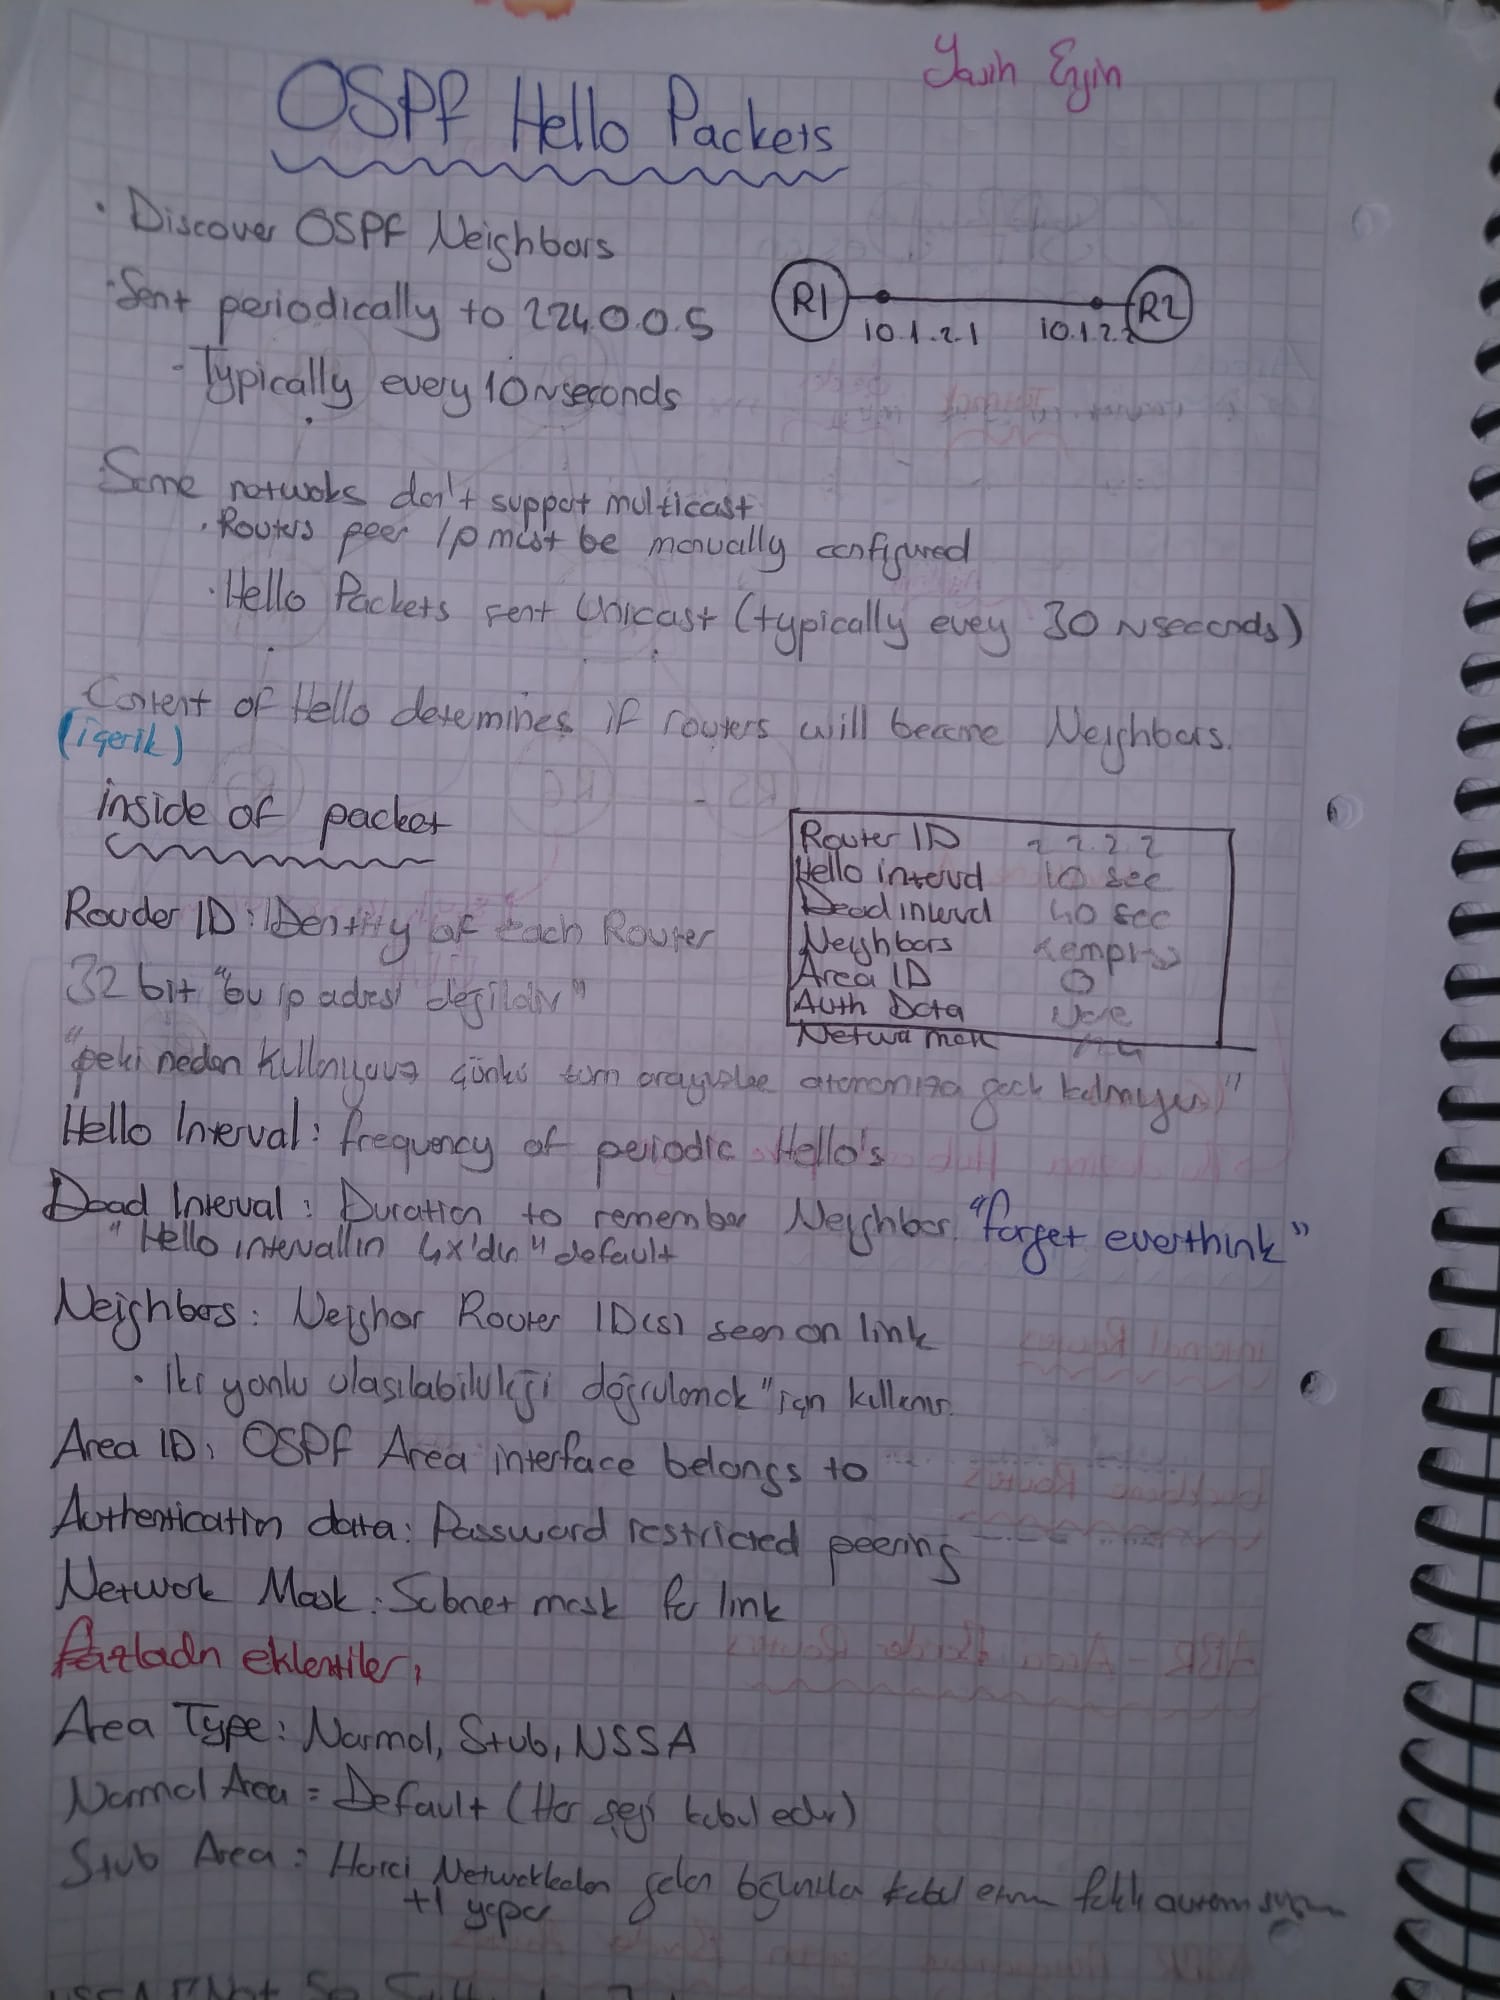 OSPF Hello Packets
• Discover OSPF Neighbors
• Sent periodically to 224.0.0.5
- Typically every 10 N seconds
R1 R2
10.1.2.1 10.1.2.2
Some networks don't support multicast
• Routers peer Ip must be manually configured
• Hello Packets sent Unicast (typically evey 30 N seconds)
Content of Hello determines if routers will become Neighbors.
(içerik)
inside of packet
Router ID 2.2.2.2
Hello interval 10 sec
Dead interval 40 sec
Neighbors <empty>
Area ID 0
Auth Data
Router ID: IDentity of each Router
32 bit "bu ip adresi değildir"
"peki neden kullanıyoruz çünkü
Hello Interval: frequency of periodic Hello's
Dead Interval: Duration to remember Neighbor. "forget everthink"
"Hello intervallin 4x'dır" default
Neighbors: Neighor Router ID(s) seen on link
• iki yönlü ulaşılabilirliği doğrulamak" için kullanır.
Area ID: OSPF Area interface belongs to
Authentication data: Password restricted peering
Network Mask: Subnet mask for link
fazladn eklentiler,
Area Type: Normal, Stub, NSSA
Normal Area = Default (Her şeyi kabul eder)
Stub Area = Harici Networkleden gelen
+1 yapar